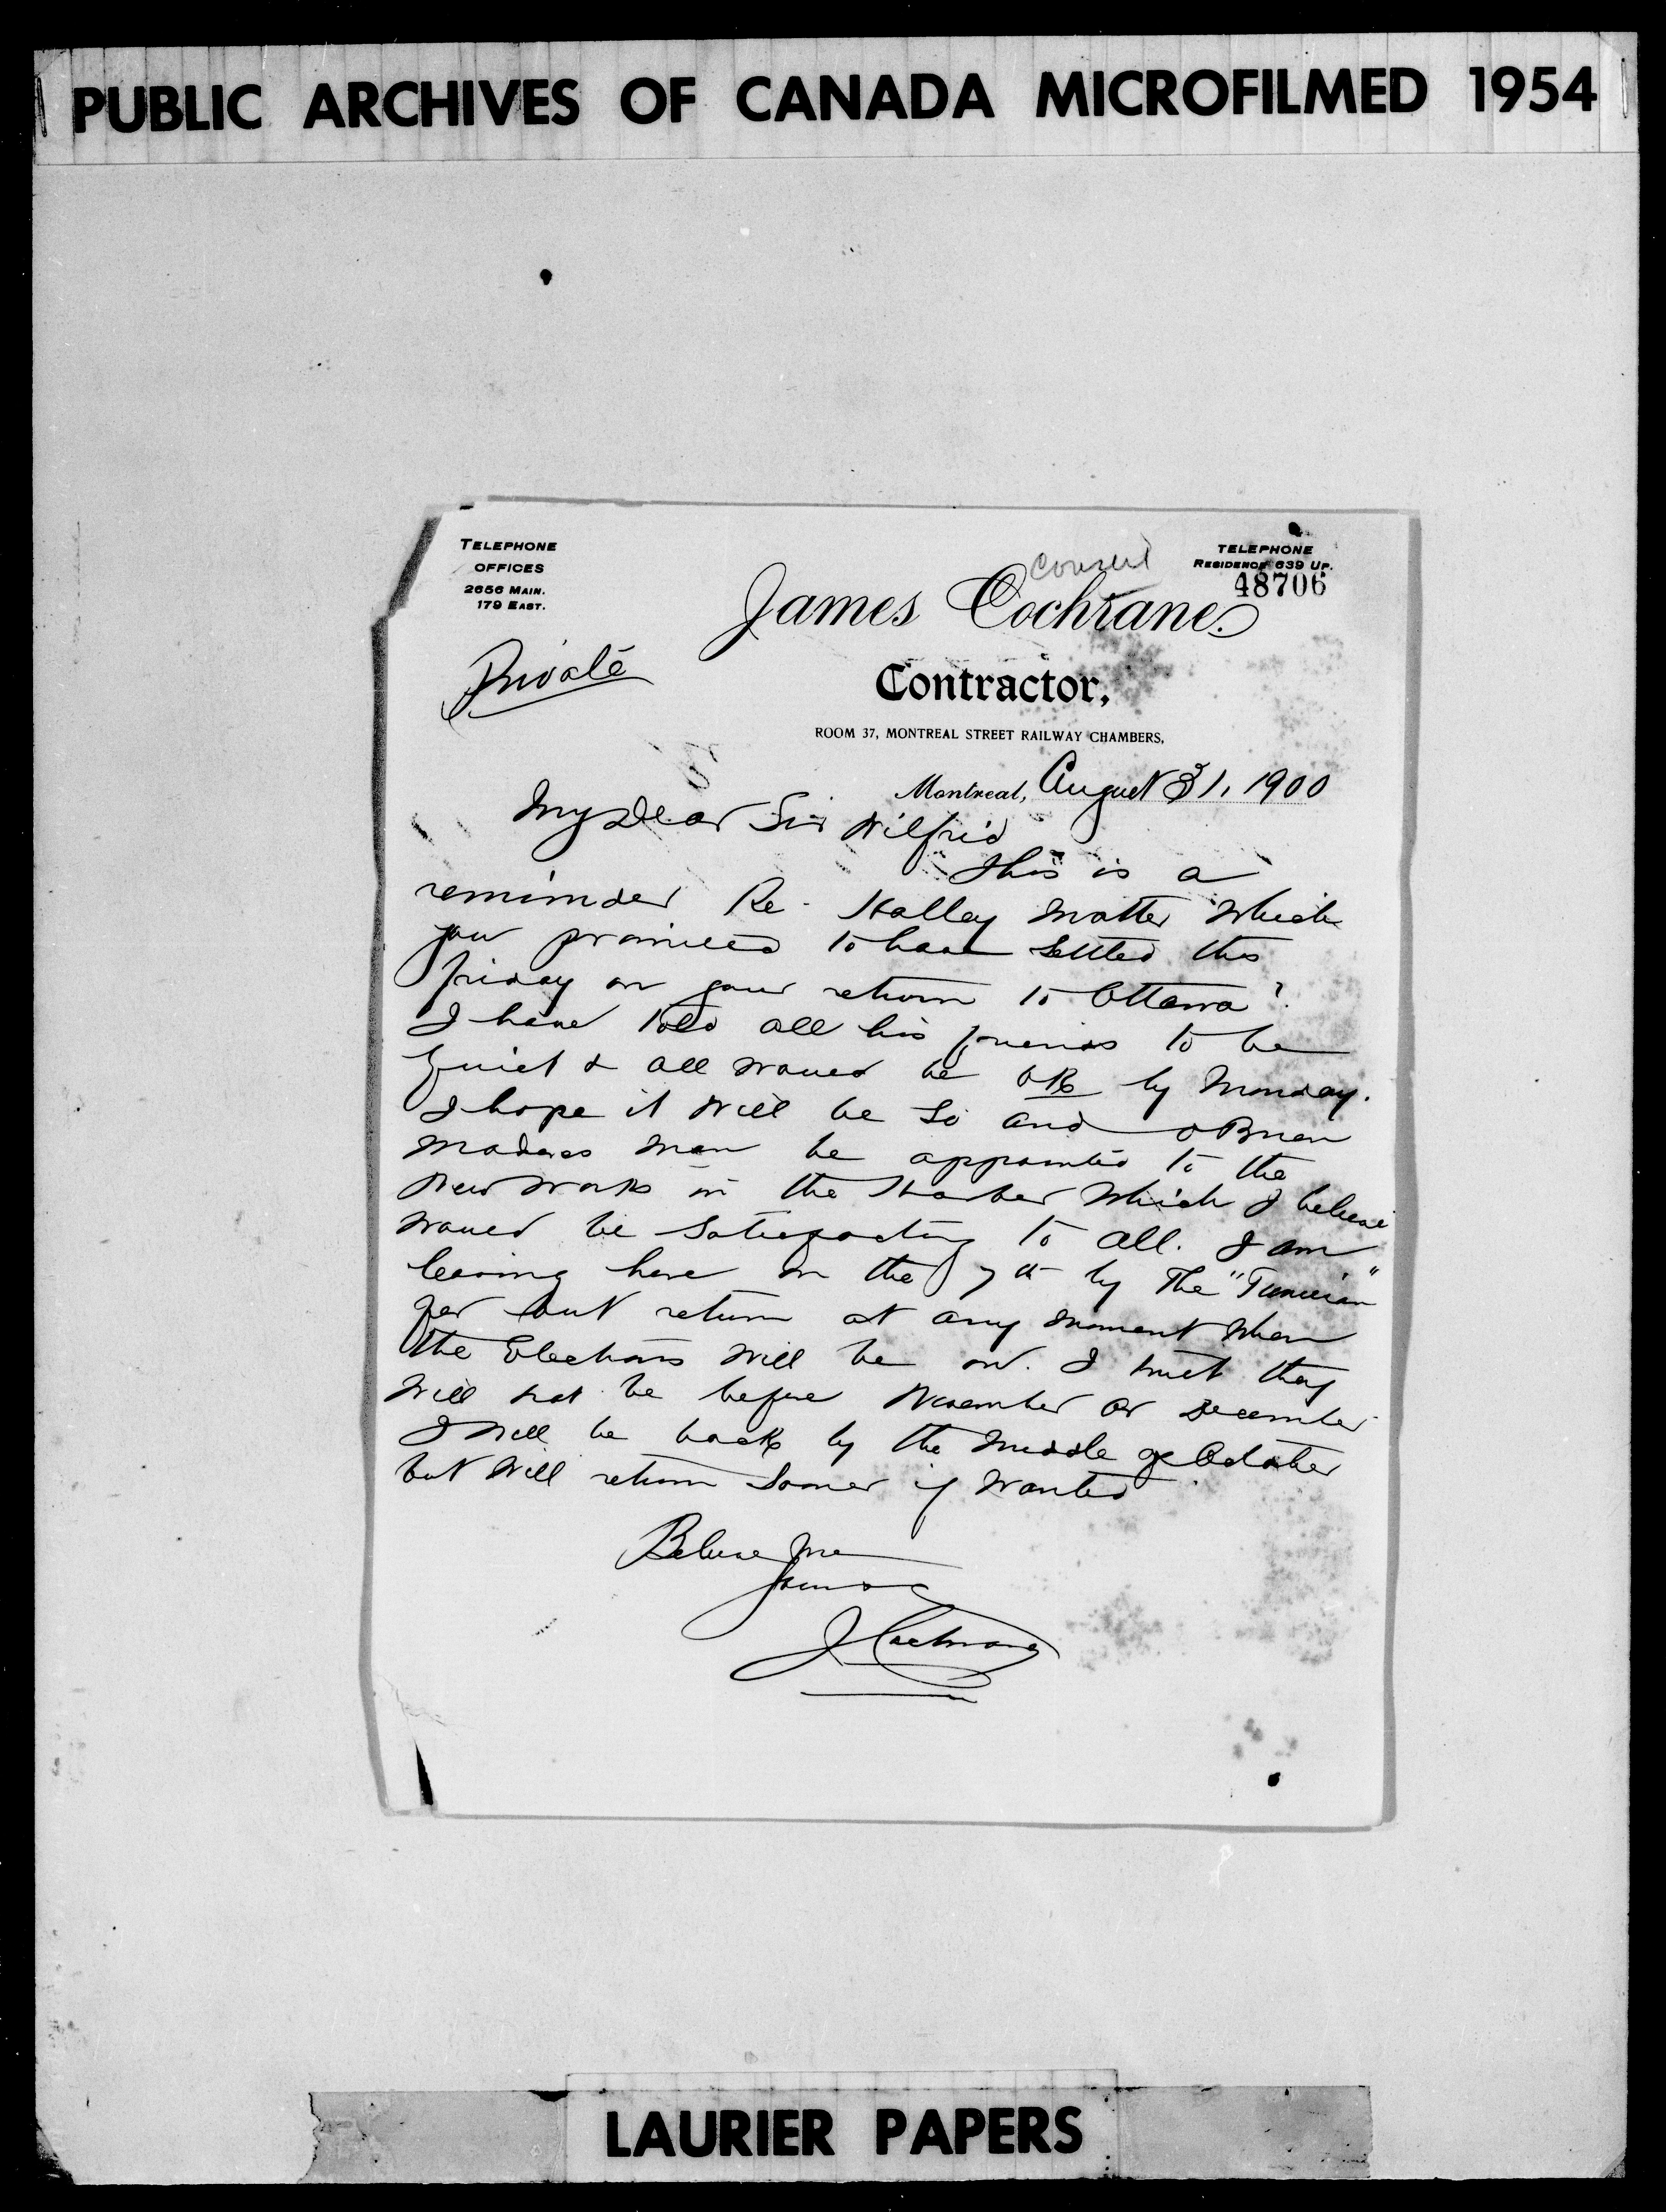 PUBLIC ARCHIVES OF CANADA MICROFILMED 1954
TELEPHONE
OFFICES
2656 MAIN.
179 EAST.
TELEPHONE
RESIDENCE 639 UP.
48706
James Cochrane.
Private
Contractor,
ROOM 37, MONTREAL STREET RAILWAY CHAMBERS,
Montreal, August 31, 1900
My Dear Sir Wilfrid
This is a
reminder Re - Halley matter which
you promised to have settled this
friday on your return to Ottawa?
I have told all his friends to be
quiet & all would be OK by Monday.
I hope it will be so and OBrien
man be appointed to the
New works in the Harbor which I believe
would be satisfactory to all. I am
leaving here on the 7th by The "Tunisian"
but return at any moment when
the Elections will be on. I trust they
will not be before November or December
I will be back by the middle of October
but will return sooner if wanted
Believe me
Yours
J Cochrane
LAURIER PAPERS